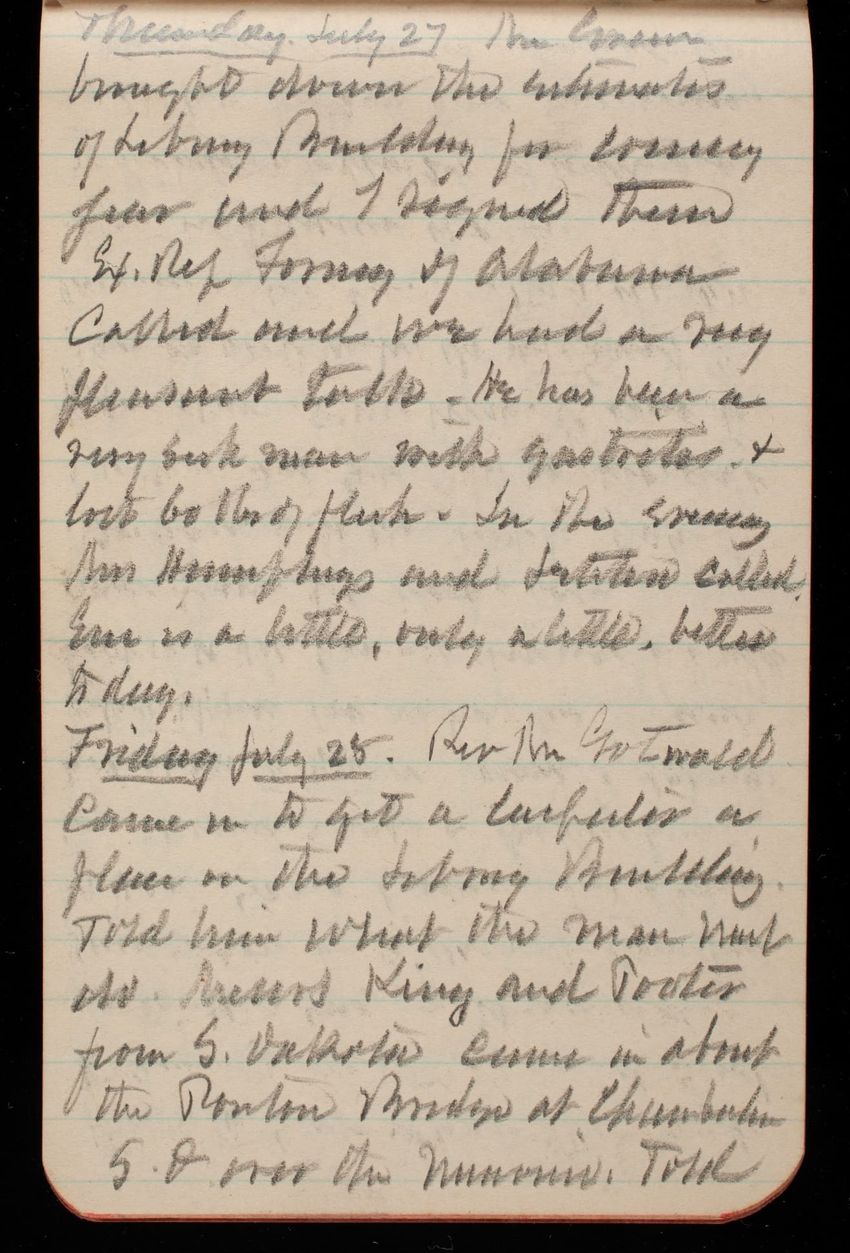 Thursday. July 27 Mr Green
brought down the estimates
of Library Building for coming
year and I signed them
Ex. Rep Forney of Alabama
Called and we had a very
pleasant talk. He has been a
very sick man with gastritis &
lost 60 lbs of flesh. In the evening
Mrs Humphreys and called.
Em is a little, only a little, better
today.
Friday July 28. Rev Mr Gotwald
came in to get a carpenter a
place on the Library Building.
Told him what the man must
do. Messrs King and Tooter
from S. Dakota came in about
the Ponton Bridge at Chamberlin
S. D over the Missouri. Told